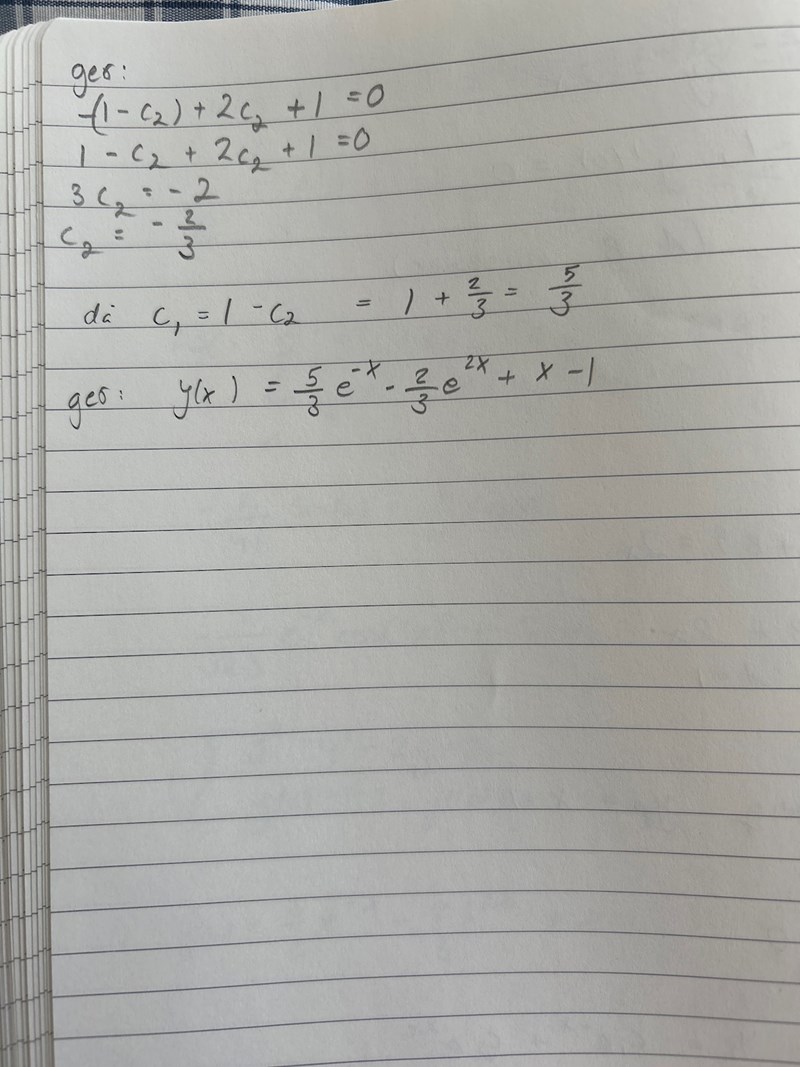 ger:
-(1 - c₂) + 2c₂ + 1 = 0
1 - c₂ + 2c₂ + 1 = 0
3c₂ = - 2
c₂ = - 2/3
då c₁ = 1 - c₂ = 1 + 2/3 = 5/3
ger: y(x) = 5/3 e^(-x) - 2/3 e^(2x) + x - 1